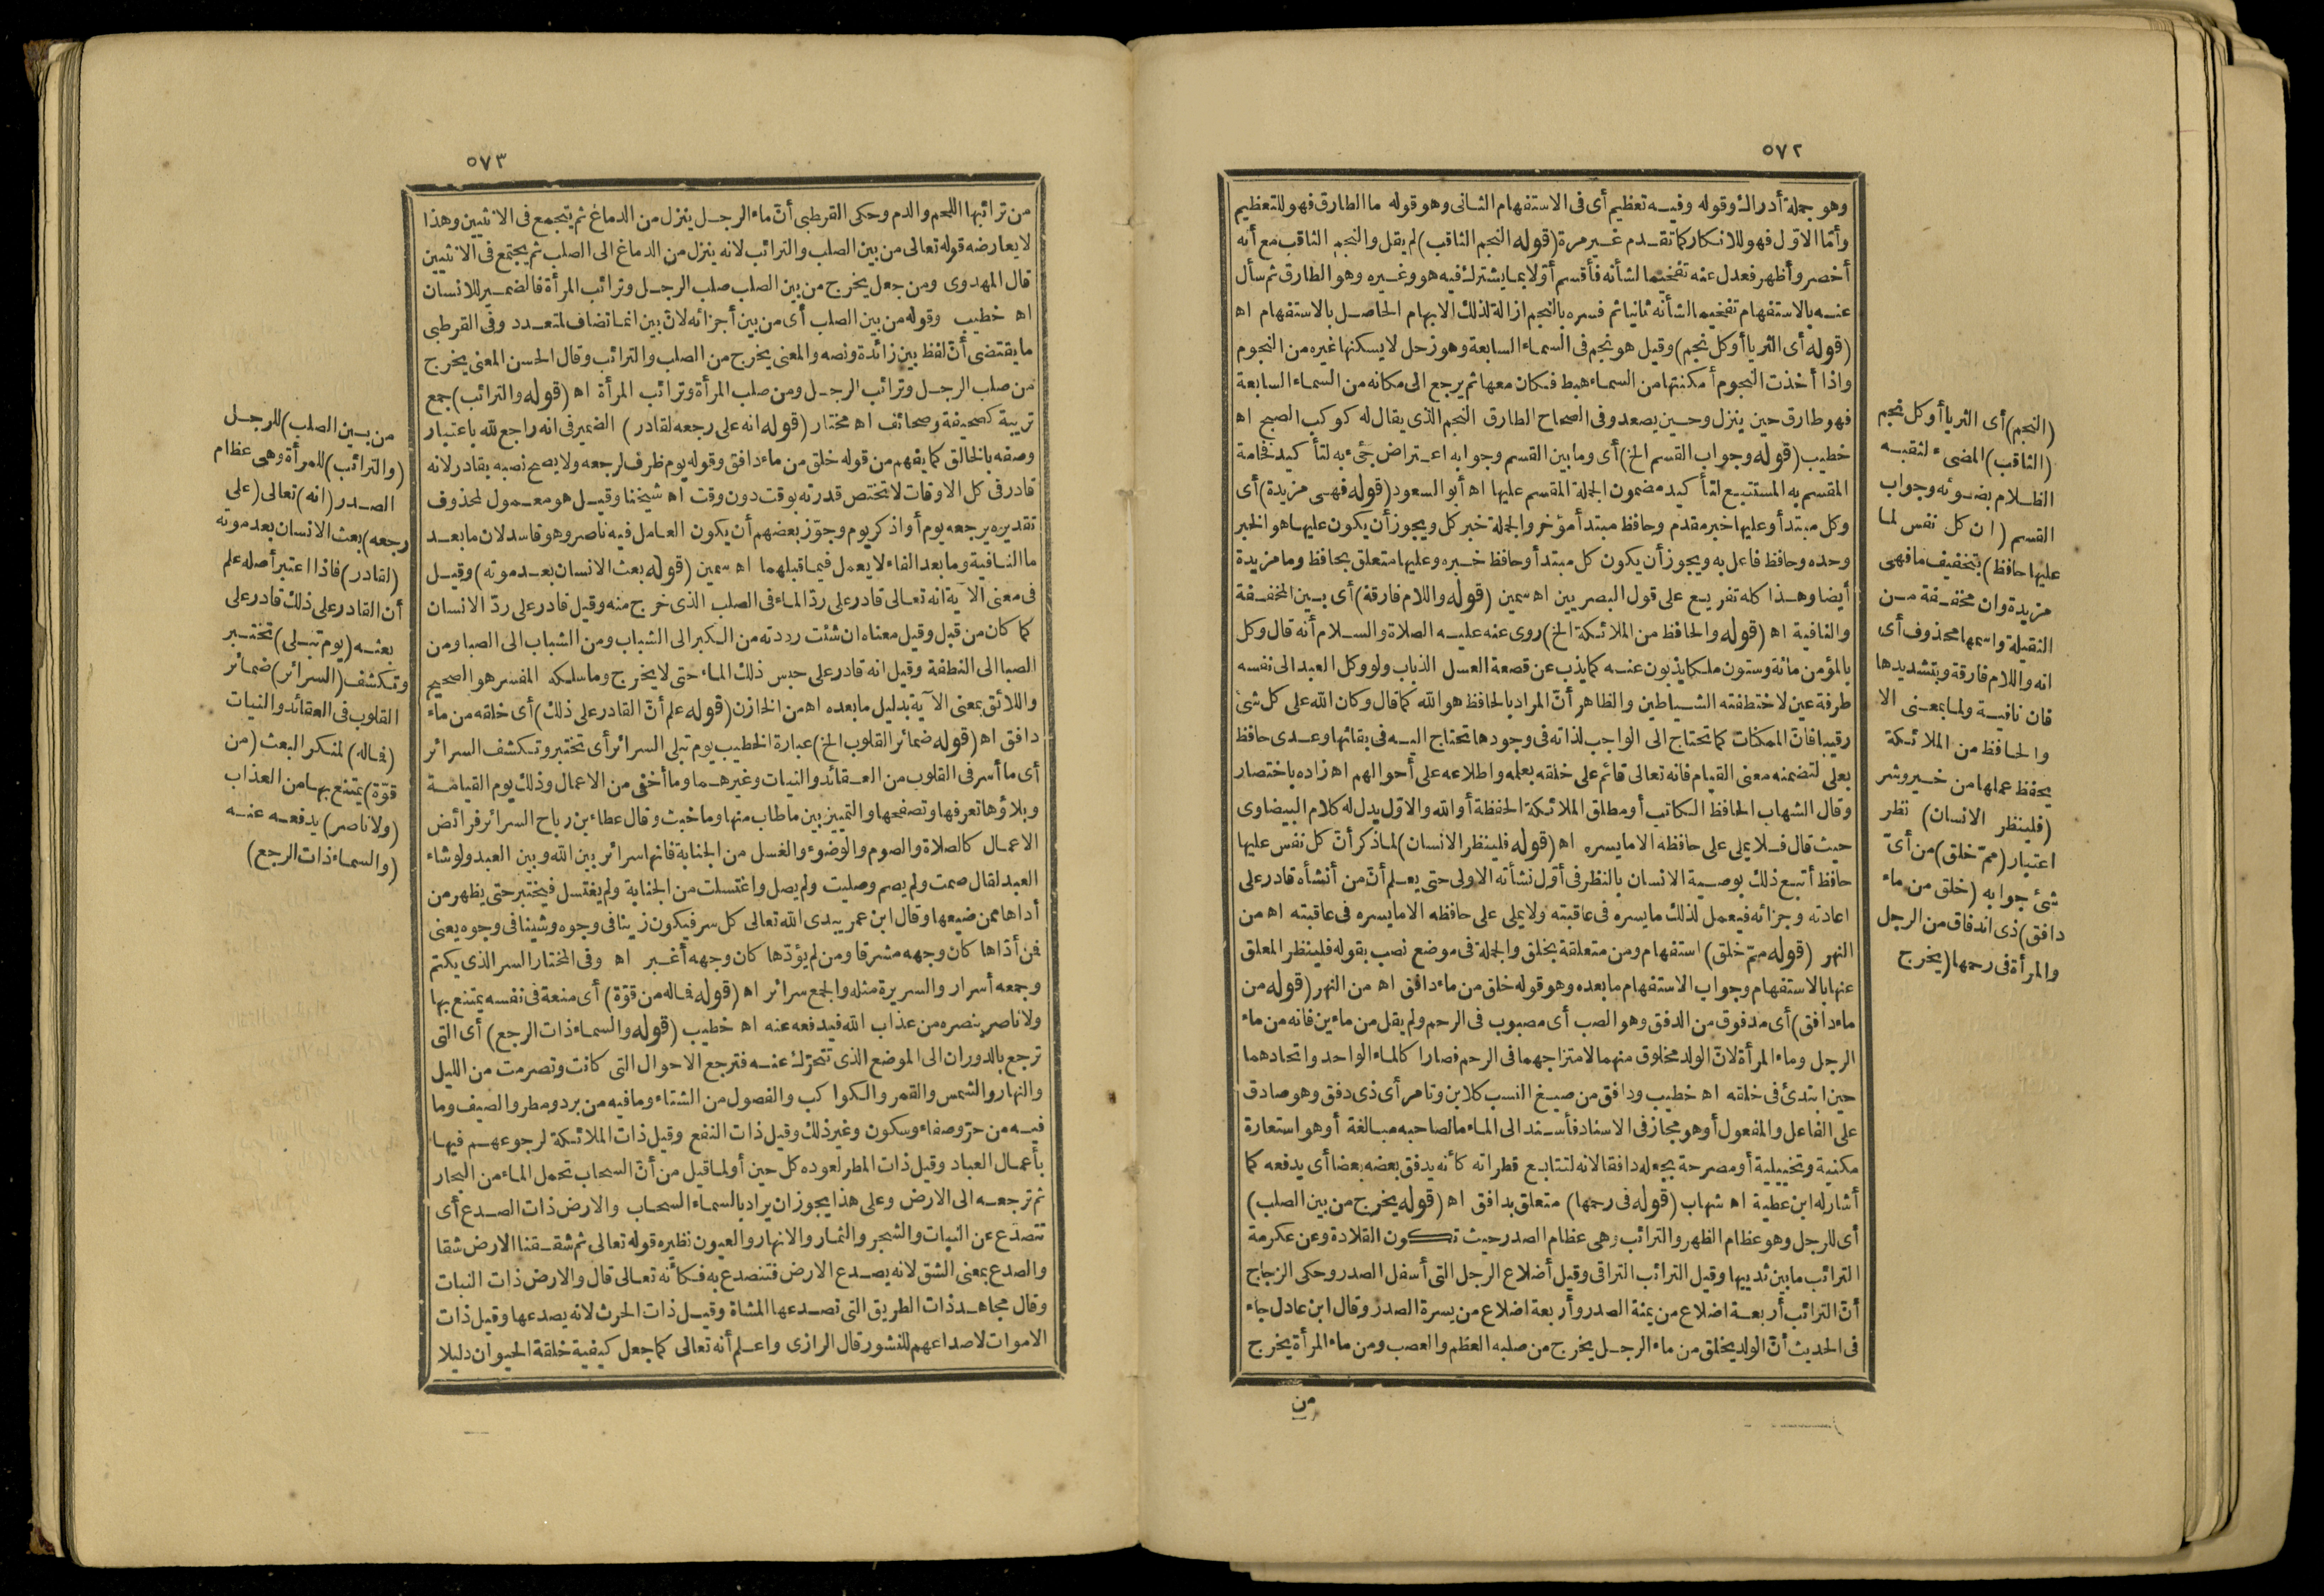 ٥٧٢
وهو جملة أدراك وقوله وفيه تعظيم أى فى الاستفهام الثانى وهو قوله ما الطارق فهو للتعظيم
وأمّا الاوّل فهو للانكار كما تقدم غير مرة (قوله النجم الثاقب) لم يقل والنجم الثاقب مع أنه
أخصر وأظهر فعدل عنه تفخيما لشأنه فأقسم أوّلا بما يشترك فيه هو وغيره وهو الطارق ثم سأل
عنه بالاستفهام تفخيما لشأنه ثانيا ثم فسره بالنجم ازالة لذلك الابهام الحاصل بالاستفهام اه
(قوله أى الثريا أو كل نجم) وقيل هو نجم فى السماء السابعة وهو زحل لا يسكنها غيره من النجوم
واذا أخذت النجوم أمكنتها من السماء هبط فكان معها ثم يرجع الى مكانه من السماء السابعة
فهو طارق حين ينزل وحين يصعد وفى الصحاح الطارق النجم الذى يقال له كوكب الصبح اه
خطيب (قوله وجواب القسم الخ) أى وما بين القسم وجوابه اعتراض جىء به لتأكيد فخامة
المقسم به المستتبع لتأكيد مضمون الجملة المقسم عليها اه أبو السعود (قوله فهى مزيدة) أى
وكل مبتدأ وعليها خبر مقدم وحافظ مبتدأ مؤخر والجملة خبر كل ويجوز أن يكون عليها هو الخبر
وحده وحافظ فاعل به ويجوز أن يكون كل مبتدأ وحافظ خبره وعليها متعلق بحافظ وما مزيدة
أيضا وهذا كله تفريع على قول البصريين اه سمين (قوله واللام فارقة) أى بين المخففة
والنافية اه (قوله والحافظ من الملائكة الخ) روى عنه عليه الصلاة والسلام أنه قال وكل
بالمؤمن مائة وستون ملكا يذبون عنه كما يذب عن قصعة العسل الذباب ولو وكل العبد الى نفسه
طرفة عين لاختطفته الشياطين والظاهر أنّ المراد بالحافظ هو الله كما قال وكان الله على كل شئ
رقيبا فانّ الممكنات كما تحتاج الى الواجب لذاته فى وجودها تحتاج اليه فى بقائها وعدى حافظ
بعلى لتضمنه معنى القيام فانه تعالى قائم على خلقه بعلمه واطلاعه على أحوالهم اه زاده باختصار
وقال الشهاب الحافظ الكاتب أو مطلق الملائكة الحفظة أو الله والاوّل يدل له كلام البيضاوى
حيث قال فلا يملى على حافظه الا ما يسره اه (قوله فلينظر الانسان) لما ذكر أنّ كل نفس عليها
حافظ أتبع ذلك بوصية الانسان بالنظر فى أوّل نشأته الاولى حتى يعلم أنّ من أنشأه قادر على
اعادته وجزائه فيعمل لذلك ما يسره فى عاقبته ولا يملى على حافظه الا ما يسره فى عاقبته اه من
النهر (قوله ممّ خلق) استفهام ومن متعلقة بخلق والجملة فى موضع نصب بقوله فلينظر المعلق
عنها بالاستفهام وجواب الاستفهام ما بعده وهو قوله خلق من ماء دافق اه من النهر (قوله من
ماء دافق) أى مدفوق من الدفق وهو الصب أى مصبوب فى الرحم ولم يقل من ماءين فانه من ماء
الرجل وماء المرأة لانّ الولد مخلوق منهما لامتزاجهما فى الرحم فصارا كالماء الواحد واتحادهما
حين ابتدئ فى خلقه اه خطيب ودافق من صيغ النسب كلابن وتامر أى ذى دفق وهو صادق
على الفاعل والمفعول أو هو مجاز فى الاسناد فأسند الى الماء ما لصاحبه مبالغة أو هو استعارة
مكنية وتخييلية أو مصرحة بجعله دافقا لانه لتتابع قطراته كأنه يدفق بعضه بعضا أى يدفعه كما
أشار له ابن عطية اه شهاب (قوله فى رحمها) متعلق بدافق اه (قوله يخرج من بين الصلب)
أى للرجل وهو عظام الظهر والترائب وهى عظام الصدر حيث تكون القلادة وعن عكرمة
الترائب ما بين ثدييها وقيل الترائب التراقى وقيل أضلاع الرجل التى أسفل الصدر وحكى الزجاج
أنّ الترائب أربعة اضلاع من يمنة الصدر وأربعة اضلاع من يسرة الصدر وقال ابن عادل جاء
فى الحديث أنّ الولد يخلق من ماء الرجل يخرج من صلبه العظم والعصب ومن ماء المرأة يخرج
من
(النجم) أى الثريا أو كل نجم
(الثاقب) المضىء لثقبه
الظلام بضوئه وجواب
القسم (ان كل نفس لما
عليها حافظ) بتخفيف ما فهى
مزيدة وان مخففة من
الثقيلة واسمها محذوف أى
انه واللام فارقة وبتشديدها
فان نافية ولما بمعنى الا
والحافظ من الملائكة
يحفظ عملها من خير وشر
(فلينظر الانسان) نظر
اعتبار (ممّ خلق) من أىّ
شئ جوابه (خلق من ماء
دافق) ذى اندفاق من الرجل
والمرأة فى رحمها (يخرج
٥٧٣
من ترائبها اللحم والدم وحكى القرطبى أنّ ماء الرجل ينزل من الدماغ ثم يتجمع فى الانثيين وهذا
لا يعارضه قوله تعالى من بين الصلب والترائب لانه ينزل من الدماغ الى الصلب ثم يجتمع فى الانثيين
قال المهدوى ومن جعل يخرج من بين الصلب صلب الرجل وترائب المرأة فالضمير للانسان
اه خطيب وقوله من بين الصلب أى من بين أجزائه لانّ بين انما تضاف لمتعدد وفى القرطبى
ما يقتضى أنّ لفظ بين زائدة ونصه والمعنى يخرج من الصلب والترائب وقال الحسن المعنى يخرج
من صلب الرجل وترائب الرجل ومن صلب المرأة وترائب المرأة اه (قوله والترائب) جمع
تريبة كصحيفة وصحائف اه مختار (قوله انه على رجعه لقادر) الضمير فى انه راجع لله باعتبار
وصفه بالخالق كما يفهم من قوله خلق من ماء دافق وقوله يوم ظرف لرجعه ولا يصح نصبه بقادر لانه
قادر فى كل الاوقات لا تختص قدرته بوقت دون وقت اه شيخنا وقيل هو معمول لمحذوف
تقديره يرجعه يوم أو اذكر يوم وجوّز بعضهم أن يكون العامل فيه ناصر وهو فاسد لان ما بعد
ما النافية وما بعد الفاء لا يعمل فيما قبلهما اه سمين (قوله بعث الانسان بعد موته) وقيل
فى معنى الآية انه تعالى قادر على ردّ الماء فى الصلب الذى خرج منه وقيل قادر على ردّ الانسان
كما كان من قبل وقيل معناه ان شئت رددته من الكبر الى الشباب ومن الشباب الى الصبا ومن
الصبا الى النطفة وقيل انه قادر على حبس ذلك الماء حتى لا يخرج وما سلكه المفسر هو الصحيح
واللائق بمعنى الآية بدليل ما بعده اه من الخازن (قوله علم أنّ القادر على ذلك) أى خلقه من ماء
دافق اه (قوله ضمائر القلوب الخ) عبارة الخطيب يوم تبلى السرائر أى تختبر وتكشف السرائر
أى ما أسر فى القلوب من العقائد والنيات وغيرهما وما أخفى من الاعمال وذلك يوم القيامة
وبلاؤها تعرفها وتصفحها والتمييز بين ما طاب منها وما خبث وقال عطاء بن رباح السرائر فرائض
الاعمال كالصلاة والصوم والوضوء والغسل من الجنابة فانها سرائر بين الله وبين العبد ولو شاء
العبد لقال صمت ولم يصم وصليت ولم يصل واغتسلت من الجنابة ولم يغتسل فيختبر حتى يظهر من
أداها ممن ضيعها وقال ابن عمر يبدى الله تعالى كل سر فيكون زينا فى وجوه وشينا فى وجوه يعنى
فمن أدّاها كان وجهه مشرقا ومن لم يؤدّها كان وجهه أغبر اه وفى المختار السر الذى يكتم
وجمعه أسرار والسريرة مثله والجمع سرائر اه (قوله فماله من قوّة) أى منعة فى نفسه يمتنع بها
ولا ناصر ينصره من عذاب الله فيدفعه عنه اه خطيب (قوله والسماء ذات الرجع) أى التى
ترجع بالدوران الى الموضع الذى تتحرّك عنه فترجع الاحوال التى كانت وتصرمت من الليل
والنهار والشمس والقمر والكواكب والفصول من الشتاء وما فيه من برد ومطر والصيف وما
فيه من حرّ وصفاء وسكون وغير ذلك وقيل ذات النفع وقيل ذات الملائكة لرجوعهم فيها
بأعمال العباد وقيل ذات المطر لعوده كل حين أو لما قيل من أنّ السحاب تحمل الماء من البحار
ثم ترجعه الى الارض وعلى هذا يجوز ان يراد بالسماء السحاب والارض ذات الصدع أى
تتصدّع عن النبات والشجر والثمار والانهار والعيون نظيره قوله تعالى ثم شققنا الارض شقا
والصدع بمعنى الشق لانه يصدع الارض فتنصدع به فكأنه تعالى قال والارض ذات النبات
وقال مجاهد ذات الطريق التى تصدعها المشاة وقيل ذات الحرث لانه يصدعها وقيل ذات
الاموات لانصداعهم للنشور قال الرازى واعلم أنه تعالى كما جعل كيفية خلقة الحيوان دليلا
من بين الصلب) للرجل
(والترائب) للمرأة وهى عظام
الصدر (انه) تعالى (على
رجعه) بعث الانسان بعد موته
(لقادر) فاذا اعتبر أصله علم
أن القادر على ذلك قادر على
بعثه (يوم تبلى) تختبر
وتكشف (السرائر) ضمائر
القلوب فى العقائد والنيات
(فماله) لمنكر البعث (من
قوّة) يمتنع بها من العذاب
(ولا ناصر) يدفعه عنه
(والسماء ذات الرجع)